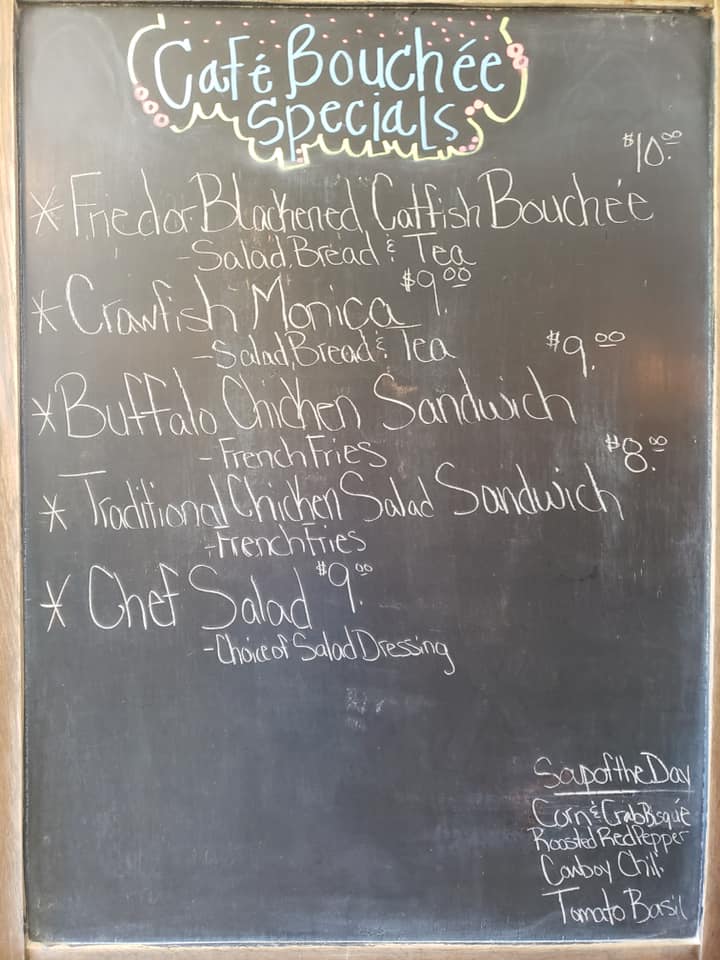 Café Bouchée
Specials
$10.00
* Fried or Blackened Catfish Bouchée
- Salad, Bread & Tea
$9.00
* Crawfish Monica
- Salad, Bread & Tea
$9.00
* Buffalo Chicken Sandwich
- French Fries
$8.00
* Traditional Chicken Salad Sandwich
- French Fries
* Chef Salad $9.00
- Choice of Salad Dressing
Soup of the Day
Corn & Crab Bisque
Roasted Red Pepper
Cowboy Chili
Tomato Basil